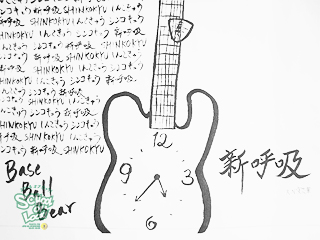 シンコキュウ 新呼吸 SHINKOKYU しんこきゅう
しんこきゅう シンコキュウ 新呼吸 SHINKOKYU
SHINKOKYU しんこきゅう シンコキュウ 新呼吸
新呼吸 SHINKOKYU しんこきゅう シンコキュウ
シンコキュウ 新呼吸 SHINKOKYU
んこきゅう シンコキュウ 新呼吸 SHINKOKYU
SHINKOKYU しんこきゅう シンコキュウ 新呼吸
新呼吸 SHINKOKYU しんこきゅう シンコキュウ
シンコキュウ 新呼吸 SHINKOKYU
んこきゅう シンコキュウ 新呼吸
HINKOKYU しんこきゅう シンコキュウ
呼吸 SHINKOKYU しんこきゅう
シンコキュウ 新呼吸 SHINKOKYU
12
9 3
6
新呼吸
Base
Ball
Bear